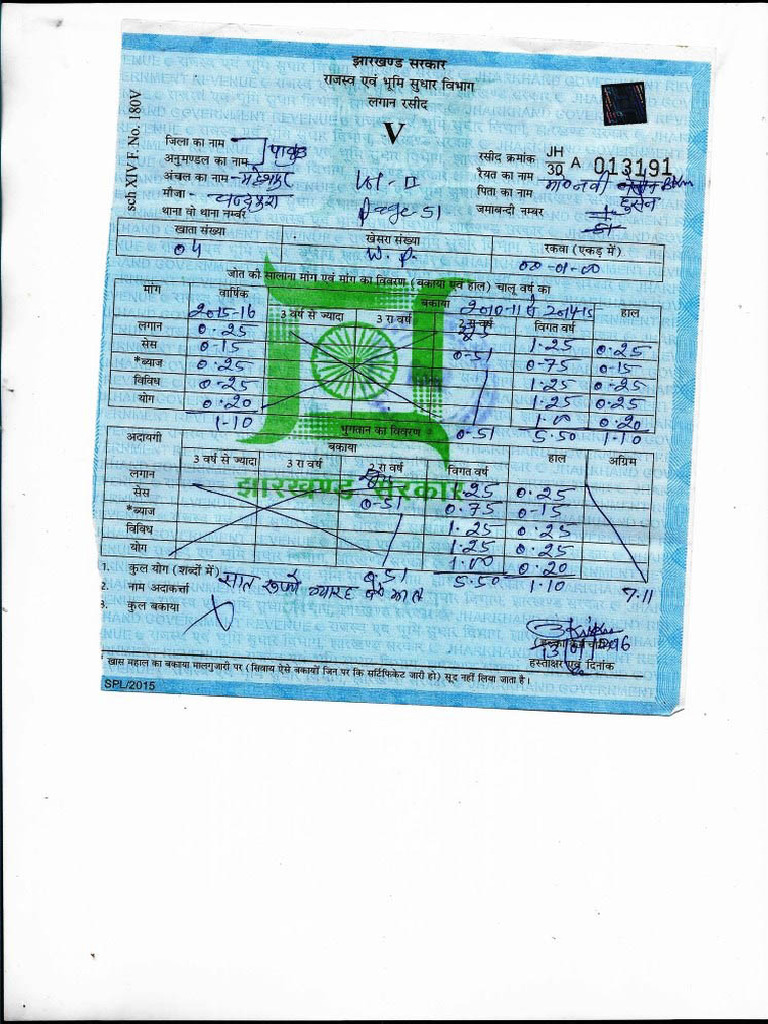 झारखण्ड सरकार
राजस्व एवं भूमि सुधार विभाग
लगान रसीद
V
sch XIV F. No. 180V
जिला का नाम
अनुमण्डल का नाम पाकुड़
अंचल का नाम - महेशपुर
मौजा -
थाना वो थाना नम्बर
Vol-II
Page-51
रसीद क्रमांक JH 30 A 013191
रैयत का नाम
पिता का नाम हुसेन
जमाबन्दी नम्बर 51
खाता संख्या खेसरा संख्या रकवा (एकड़ में)
04 W.P. 00-01-00
जोत की सालाना मांग एवं मांग का विवरण (बकाया एवं हाल) चालू वर्ष का
मांग वार्षिक बकाया 2010-11 से 2014-15 हाल
2015-16 3 वर्ष से ज्यादा 3 रा वर्ष 2 रा वर्ष विगत वर्ष
लगान 0.25 1.25 0.25
सेस 0-15 0-51 0-75 0-15
*ब्याज 0.25 1.25 0-25
विविध 0-25 1.25 0.25
योग 0.20 1.00 0.20
1-10 0-51 5.50 1-10
भुगतान का विवरण
अदायगी बकाया हाल अग्रिम
3 वर्ष से ज्यादा 3 रा वर्ष 2 रा वर्ष विगत वर्ष
लगान 1.25 0.25
सेस 0-51 0.75 0-15
*ब्याज 1.25 0.25
विविध 1.25 0.25
योग 1.00 0.20
0.51 5.50 1.10 7.11
1. कुल योग (शब्दों में) सात रूपये ग्यारह
2. नाम अदाकर्त्ता
3. कुल बकाया
हस्ताक्षर एवं दिनांक
* खास महाल का बकाया मालगुजारी पर (सिवाय ऐसे बकायों जिन पर कि सर्टिफिकेट जारी हो) सूद नहीं लिया जाता है।
SPL/2015
झारखण्ड सरकार